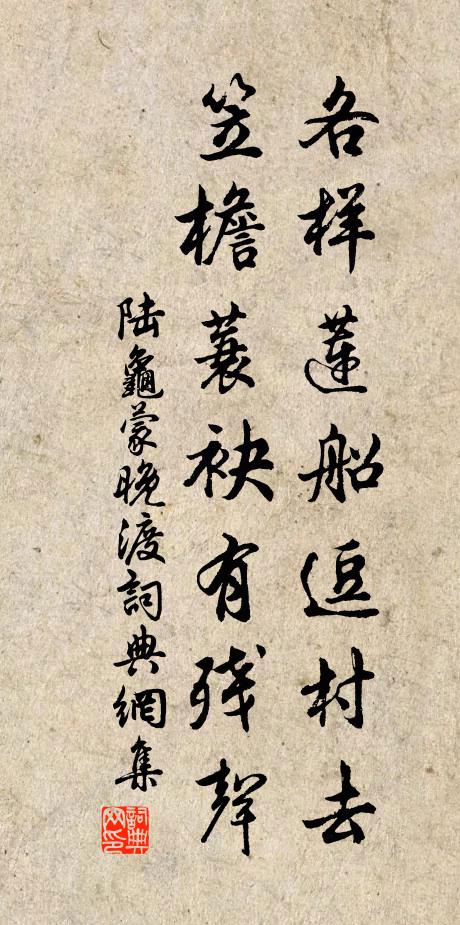 各样莲船逗村去
笠檐蓑袂有残聲
陆龜蒙晚渡詞典網集
詞典网印